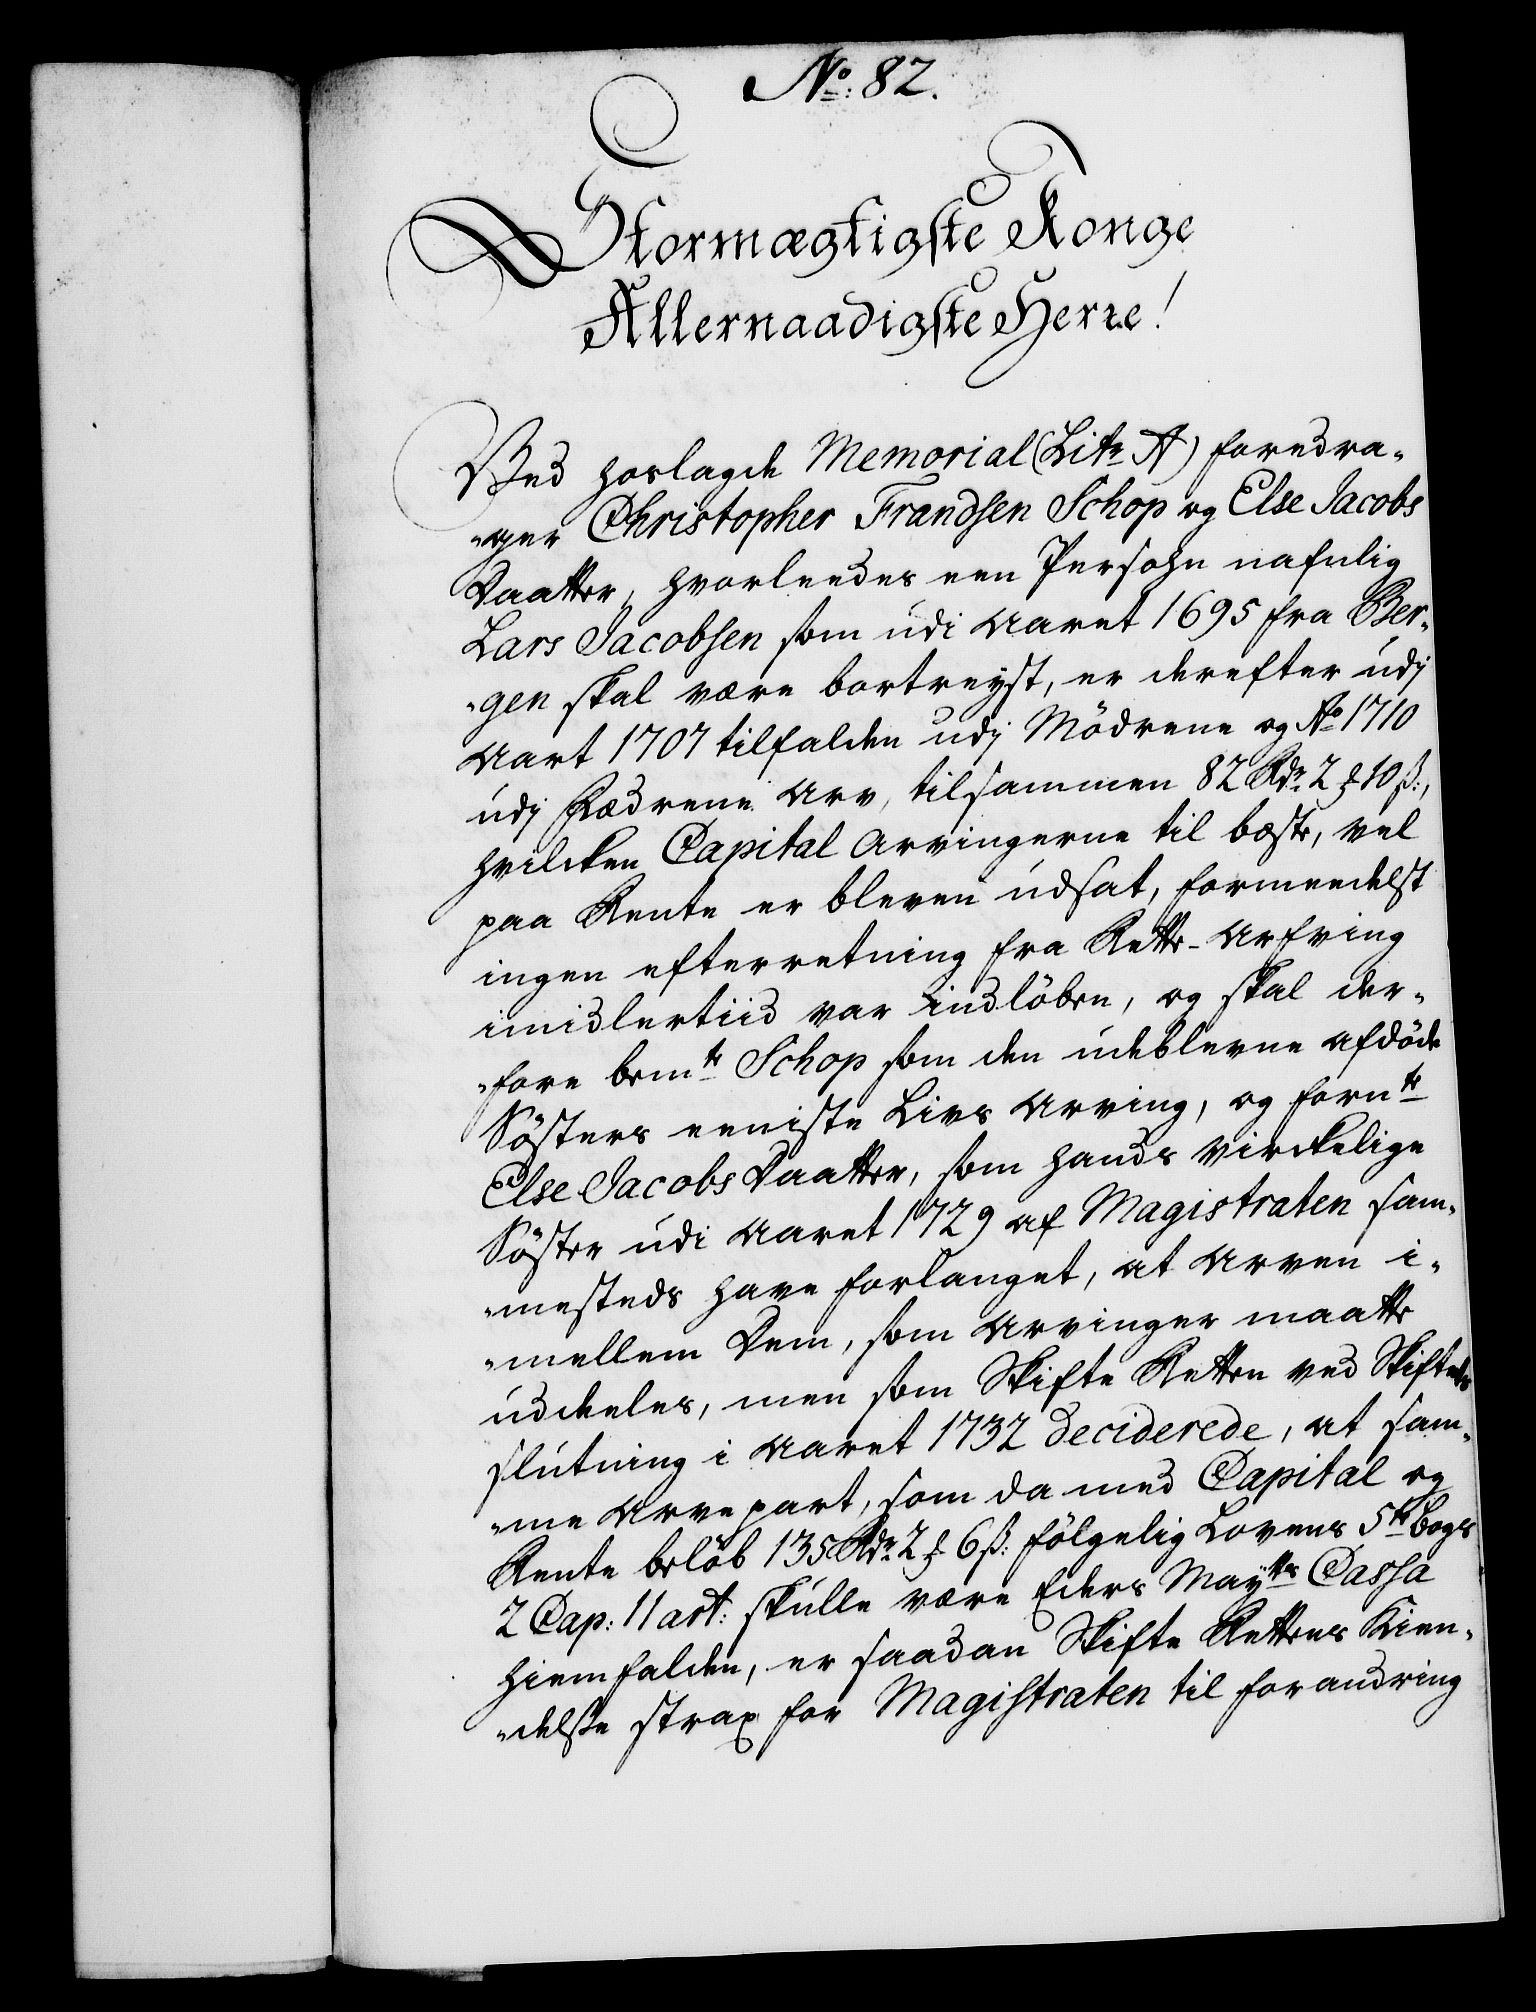 No: 82.
Stormægtigste Konge
Allernaadigste Herre!
Ved hoslagde Memorial (Litr A) foredra-
-ger Christopher Frandsen Schop og Else Jacobs
Daatter, hvorleedes een Persohn nafnlig
Lars Jacobsen som udi Aaret 1695 fra Ber-
-gen skal være bortreyst, er derefter udj
Aart 1707 tilfalden udj Mödrene og Ao 1710
udj Fædrene Arv, tilsammen 82 Rdr 2 ƺ 10 ß:,
hvilcken Capital Arvingerne til beste, vel
paa Rente er bleven udsat, formeedelst
ingen efterretning fra Rette-Arfving
imidlertiid var indlöben, og skal der-
-fore bemte Schop som den udeblevne afdöde
Sösters eeniste Livs Arving, og fornte
Else Jacobs Daatter, som hands virckelige
Söster udi Aaret 1729 af Magistraten sam-
-mesteds have forlanget, at Arven i-
-mellem Dem, som Arvinger maatte
uddeeles, men som Skifte Retten ved Skiftets
slutning i Aaret 1732 deciderede, at sam-
-me Arvepart, som da med Capital og
Rente belöb 135 Rdr 2 ƺ 6 ß: fölgelig Lovens 5te bogs
2 Cap: 11 art: skulle være Eders Maytts Cassa
hiemfalden, er saadan Skifte Rettens Kien-
-delße strax for Magistraten til forandring